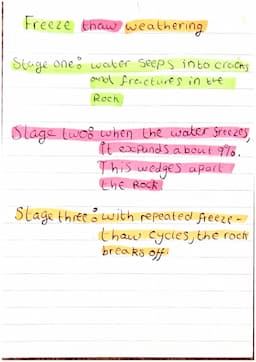 Freeze thaw weathering
Stage one: water seeps into cracks
and fractures in the
Rock
Stage two: when the water freezes,
it expands about 9%.
This wedges apart
the Rock
Stage three: with repeated freeze-
thaw cycles, the rock
breaks off.